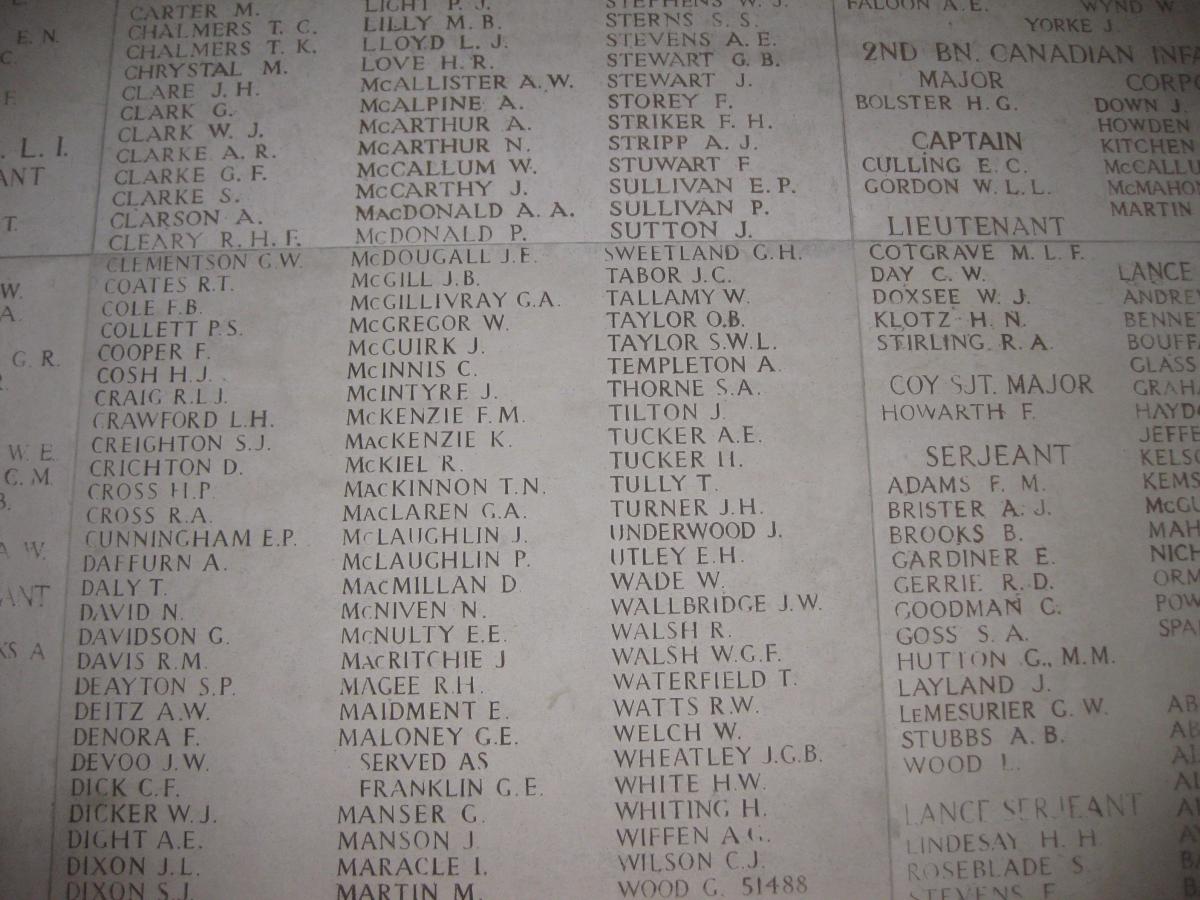 E. N.
C.
F.
L. I.
ANT
T.
W.
A.
G. R.
W. E.
C. M.
B.
A W.
ANT
KS A
CARTER M.
CHALMERS T. C.
CHALMERS T. K.
CHRYSTAL M.
CLARE J. H.
CLARK G.
CLARK W. J.
CLARKE A. R.
CLARKE G. F.
CLARKE S.
CLARSON A.
CLEARY R. H. F.
CLEMENTSON G.W.
COATES R.T.
COLE F.B.
COLLETT P.S.
COOPER F.
COSH H.J.
CRAIG R.L.J.
CRAWFORD L.H.
CREIGHTON S.J.
CRICHTON D.
CROSS H.P.
CROSS R.A.
CUNNINGHAM E.P.
DAFFURN A.
DALY T.
DAVID N.
DAVIDSON G.
DAVIS R.M.
DEAYTON S.P.
DEITZ A.W.
DENORA F.
DEVOO J.W.
DICK C.F.
DICKER W.J.
DIGHT A.E.
DIXON J.L.
DIXON S.J.
LIGHT P. J.
LILLY M. B.
LLOYD L. J.
LOVE H. R.
McALLISTER A.W.
McALPINE A.
McARTHUR A.
McARTHUR N.
McCALLUM W.
McCARTHY J.
MacDONALD A. A.
McDONALD P.
McDOUGALL J.E.
McGILL J.B.
McGILLIVRAY G.A.
McGREGOR W.
McGUIRK J.
McINNIS C.
McINTYRE J.
McKENZIE F.M.
MacKENZIE K.
McKIEL R.
MacKINNON T.N.
MacLAREN G.A.
McLAUGHLIN J.
McLAUGHLIN P.
MacMILLAN D
McNIVEN N.
McNULTY E.E.
MacRITCHIE J
MAGEE R.H.
MAIDMENT E.
MALONEY G.E.
SERVED AS
FRANKLIN G.E.
MANSER G.
MANSON J.
MARACLE I.
MARTIN M.
STEPHENS W. J.
STERNS S. S.
STEVENS A. E.
STEWART G. B.
STEWART J.
STOREY F.
STRIKER F. H.
STRIPP A. J.
STUWART F
SULLIVAN E. P.
SULLIVAN P.
SUTTON J.
SWEETLAND G.H.
TABOR J.C.
TALLAMY W.
TAYLOR O.B.
TAYLOR S.W.L.
TEMPLETON A.
THORNE S.A.
TILTON J.
TUCKER A.E.
TUCKER H.
TULLY T.
TURNER J.H.
UNDERWOOD J.
UTLEY E.H.
WADE W.
WALLBRIDGE J.W.
WALSH R.
WALSH W.G.F.
WATERFIELD T.
WATTS R.W.
WELCH W.
WHEATLEY J.G.B.
WHITE H.W.
WHITING H.
WIFFEN A.G.
WILSON C.J.
WOOD G. 51488
FALOON A.E.
WYND W
YORKE J.
2ND BN. CANADIAN INFA
MAJOR
BOLSTER H. G.
CAPTAIN
CULLING E. C.
GORDON W. L. L.
LIEUTENANT
COTGRAVE M. L. F.
DAY C. W.
DOXSEE W. J.
KLOTZ H. N.
STIRLING R. A.
COY SJT. MAJOR
HOWARTH F.
SERJEANT
ADAMS F. M.
BRISTER A. J.
BROOKS B.
GARDINER E.
GERRIE R. D.
GOODMAN C.
GOSS S. A.
HUTTON G., M.M.
LAYLAND J.
LeMESURIER G. W.
STUBBS A. B.
WOOD L.
LANCE SERJEANT
LINDESAY H. H.
ROSEBLADE S.
STEVENS F.
CORPO
DOWN J.
HOWDEN
KITCHEN
McCALLU
McMAHO
MARTIN
LANCE
ANDREW
BENNE
BOUFFA
GLASS
GRAH
HAYDO
JEFFE
KELSO
KEMS
McGU
MAH
NICH
ORM
POW
SPA
AB
AB